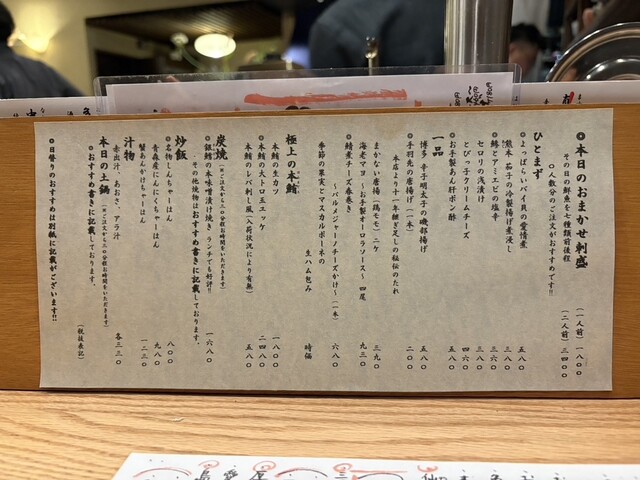 ◎本日のおまかせ刺盛
その日の鮮魚を七種類前後程
(一人前)一一八〇
◎人数分のご注文がおすすめです!!
(二人前)三四〇〇
ひとまず
◎よっぱらいバイ貝の愛情煮 五八〇
◎熊本 茄子の冷製揚げ煮浸し 三八〇
◎鯵とアミエビの塩辛 三六〇
セロリの浅漬け 三六〇
とびっ子クリームチーズ 四六〇
◎お手製あん肝ポン酢 五八〇
一品
博多 辛子明太子の磯部揚げ 五八〇
◎手羽先の唐揚げ(一本) 二〇〇
本店より十一年継ぎ足しの秘伝のたれ
まかない唐揚(鶏モモ)二ケ 三九〇
海老マヨ 〜お手製オーロラソース〜 四尾 九三〇
◎鯖煮チーズ春巻き 六八〇
〜パルメジャーノチーズかけ〜(一本)
季節の果実とマスカルポーネの
生ハム包み 時価
極上の本鮪
本鮪の生カツ 一八〇〇
◎本鮪の大トロ玉エッケ 二四八〇
本鮪のレバ刺し風(入荷状況により有無) 五八〇
炭焼(※ご注文から二〇分程お時間をいただきます)
◎銀鱈の本味噌漬け焼き ランチでも好評!! 一六八〇
・その他焼物はおすすめ書きに記載しております。
炒飯
◎名物しんちゃーはん 八〇〇
青森産にんにくちゃーはん 九八〇
蟹あんかけちゃーはん 一二三〇
汁物
赤出汁、あおさ、アラ汁 各三三〇
本日の土鍋(※ご注文から三〇分程お時間をいただきます)
◎おすすめ書きに記載しております。
(税抜表記)
◎日替りのおすすめは別紙に記載がございます!!